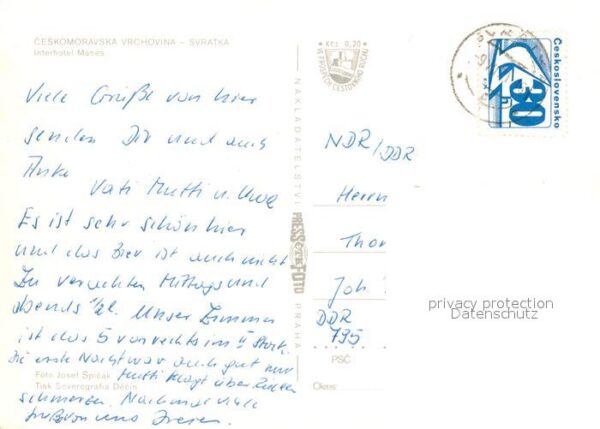 ČESKOMORAVSKÁ VRCHOVINA – SVRATKA
Interhotel Mánes
Viele Grüße von hier
senden Dir und auch
Anke
Vati Mutti u. Uwe
Es ist sehr schön hier
und das Bier ist auch nicht
zu verachten Mittags und
abends ½l. Unser Zimmer
ist das 5 von rechts im II Stock.
Die erste Nacht war auch gut nur
Mutti klagt über Rücken
schmerzen. Nochmal viele
Grüße von uns
Foto Josef Špičák
Tisk Severografia Děčín
Kčs 0,20
VE PROSPĚCH CESTOVNÍHO RUCHU
NAKLADATELSTVÍ
PRESSFOTO
PRAHA
Československo
30 h
NDR/DDR
Herrn
Thor
Joh
DDR
795
PSČ
Okres:
privacy protection
Datenschutz